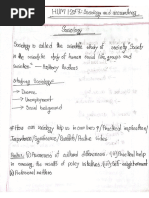 HUM 1247: Sociology and accounting
Sociology
Sociology is called the scientific study of society. Society
is the scientific study of human social life, groups and
societies." — Anthony Giddens
Studying Sociology:
→ Divorce.
→ Unemployment
→ Social background
How can sociology help us in our lives? / Practical implication /
Importance / Significance / Benefits / Positive sides
(i) Awareness of cultural differences (ii) Practical help
in assessing the results of policy initiatives (iii) Self-enlightenment